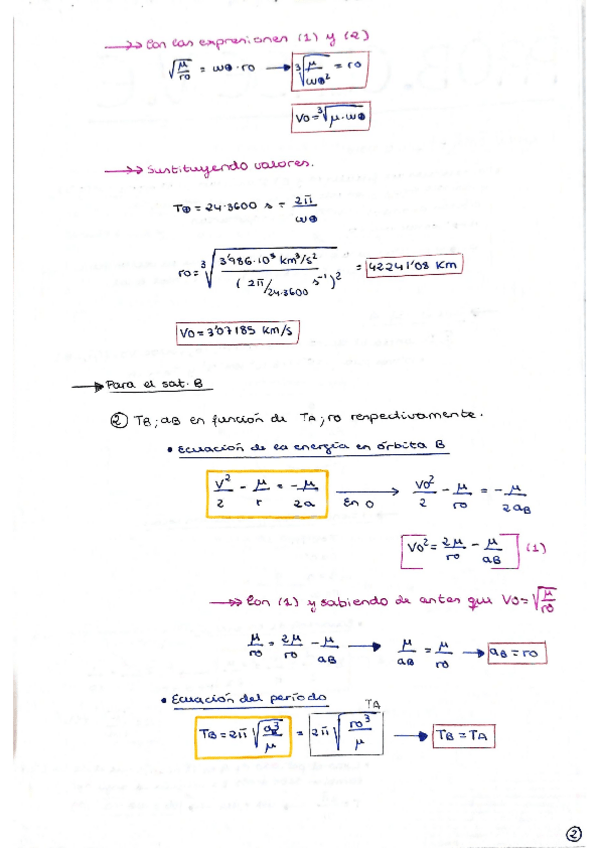 →→ Con las expresiones (1) y (2)
√(μ/ro) = ω⊕·ro → ∛(μ/ω⊕²) = ro
Vo = ∛(μ·ω⊕)
→→ Sustituyendo valores.
T⊕ = 24·3600 s = 2π/ω⊕
ro = ∛(3'986·10⁵ km³/s² / (2π/24·3600 s⁻¹)²) = 42241'08 Km
Vo = 3'07185 Km/s
→ Para el sat. B
② TB; aB en función de TA; ro respectivamente.
• Ecuación de la energía en órbita B
V²/2 - μ/r = -μ/2a → En O Vo²/2 - μ/ro = -μ/2aB
Vo² = 2μ/ro - μ/aB (1)
→→ Con (1) y sabiendo de antes que Vo = √(μ/ro)
μ/ro = 2μ/ro - μ/aB → μ/aB = μ/ro → aB = ro
• Ecuación del período
TA
TB = 2π√(aB³/μ) = 2π√(ro³/μ) → TB = TA
2